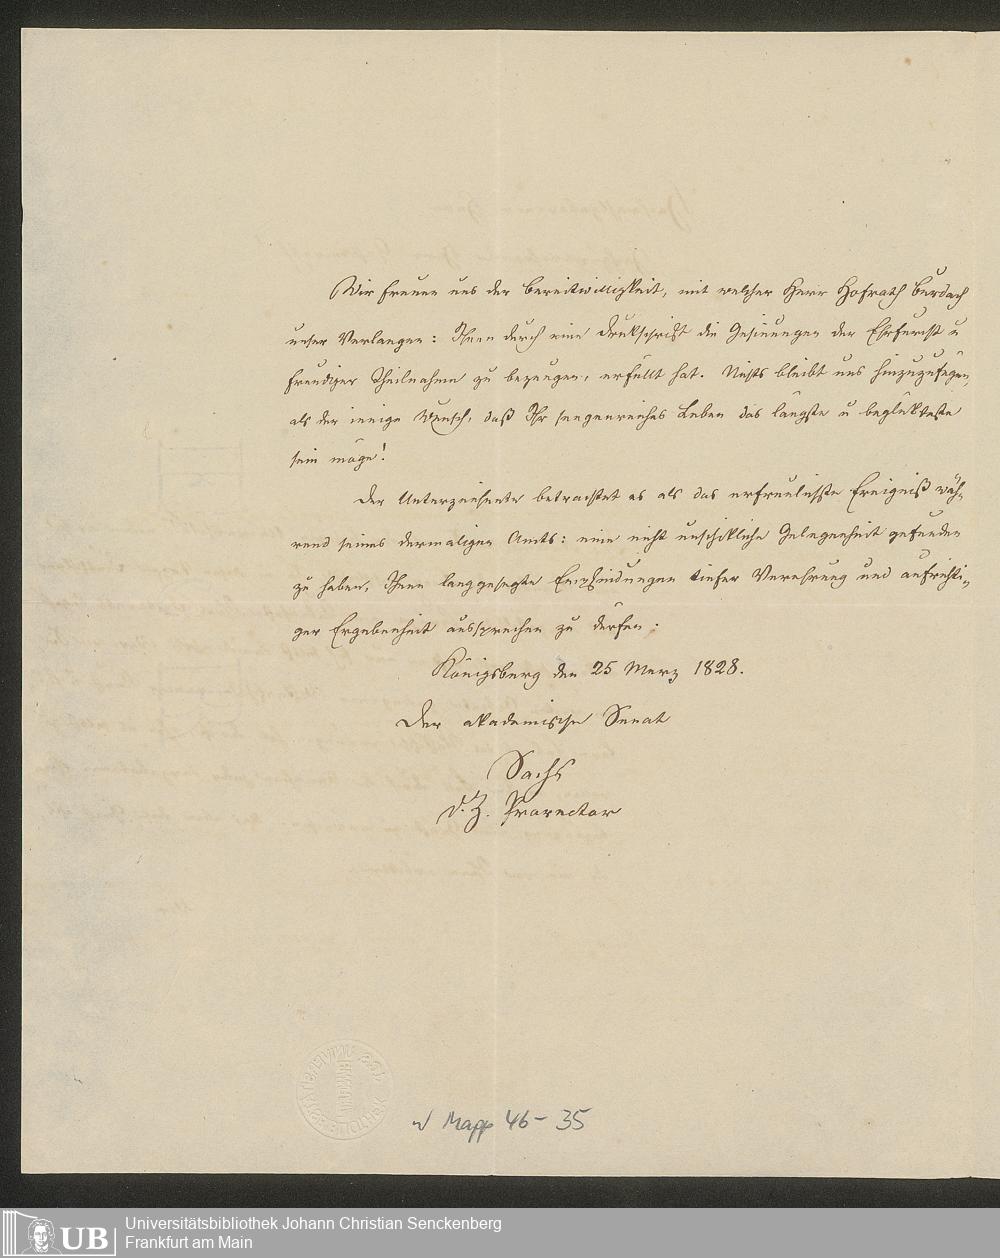 Wir freuen uns der Bereitwilligkeit, mit welcher Herr Hofrath Burdach
unser Verlangen: Ihnen durch eine Drukschrift die Gesinnungen der Ehrfurcht u
freudiger Theilnahme zu bezeugen, erfüllt hat. Nichts bleibt uns hinzuzufügen,
als der innige Wunsch, daß Ihr seegenreiches Leben das längste u beglükteste
sein möge!
Der Unterzeichnete betrachtet es als das erfreulichste Ereigniß wäh-
rend seines dermaligen Amts: eine nicht unschikliche Gelegenheit gefunden
zu haben, Ihnen langgehegte Empfindungen tiefer Verehrung und aufrichti-
ger Ergebenheit aussprechen zu dürfen.
Königsberg den 25 Merz 1828.
Der akademische Senat
Sachs
d. Z. Prorector
Mapp 46-35
UB
Universitätsbibliothek Johann Christian Senckenberg
Frankfurt am Main